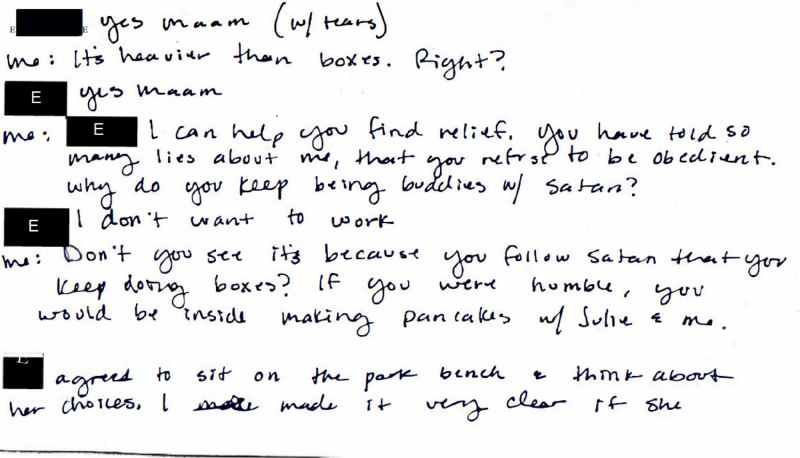 E yes maam (w/ tears)
me: It's heavier than boxes. Right?
E yes maam
me: E I can help you find relief. You have told so
many lies about me, that you refuse to be obedient.
why do you keep being buddies w/ Satan?
E I don't want to work
me: Don't you see it's because you follow Satan that you
keep doing boxes? If you were humble, you
would be inside making pancakes w/ Julie & me.
E agreed to sit on the park bench & think about
her choices. I made it very clear if she